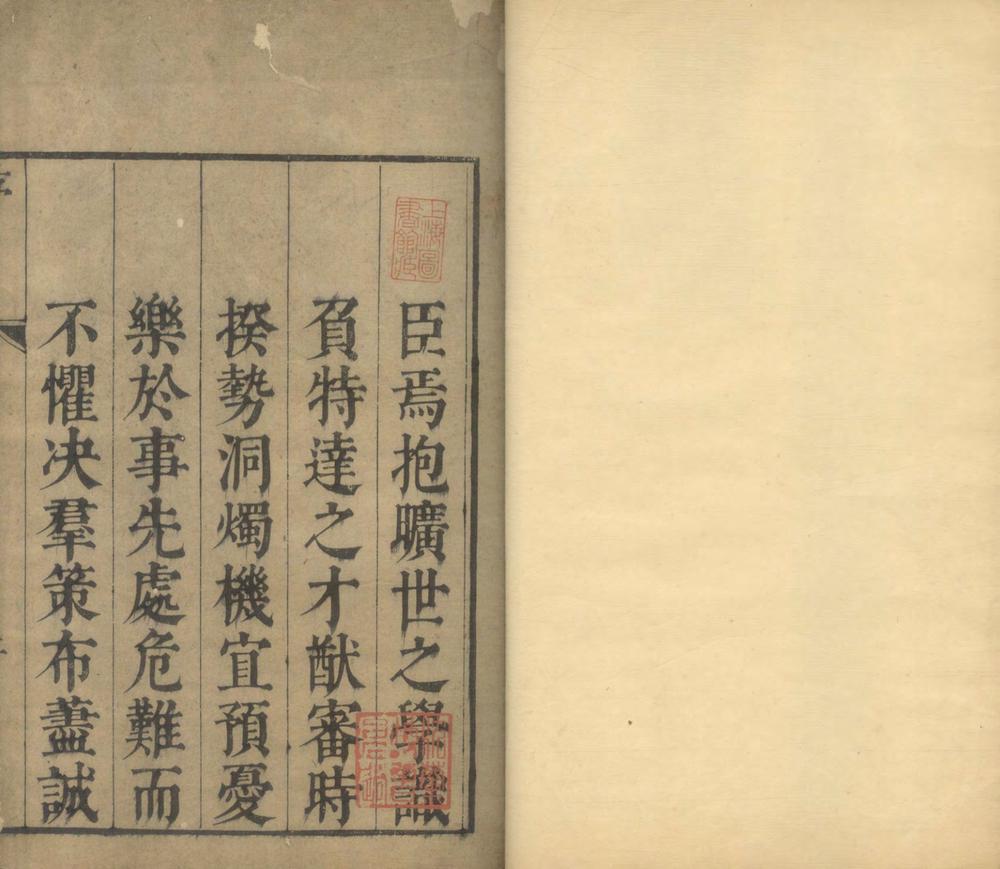 臣焉抱曠世之學識
負特達之才猷審時
揆勢洞燭機宜預憂
樂於事先處危難而
不懼决羣策布藎誠
上海圖
書館藏